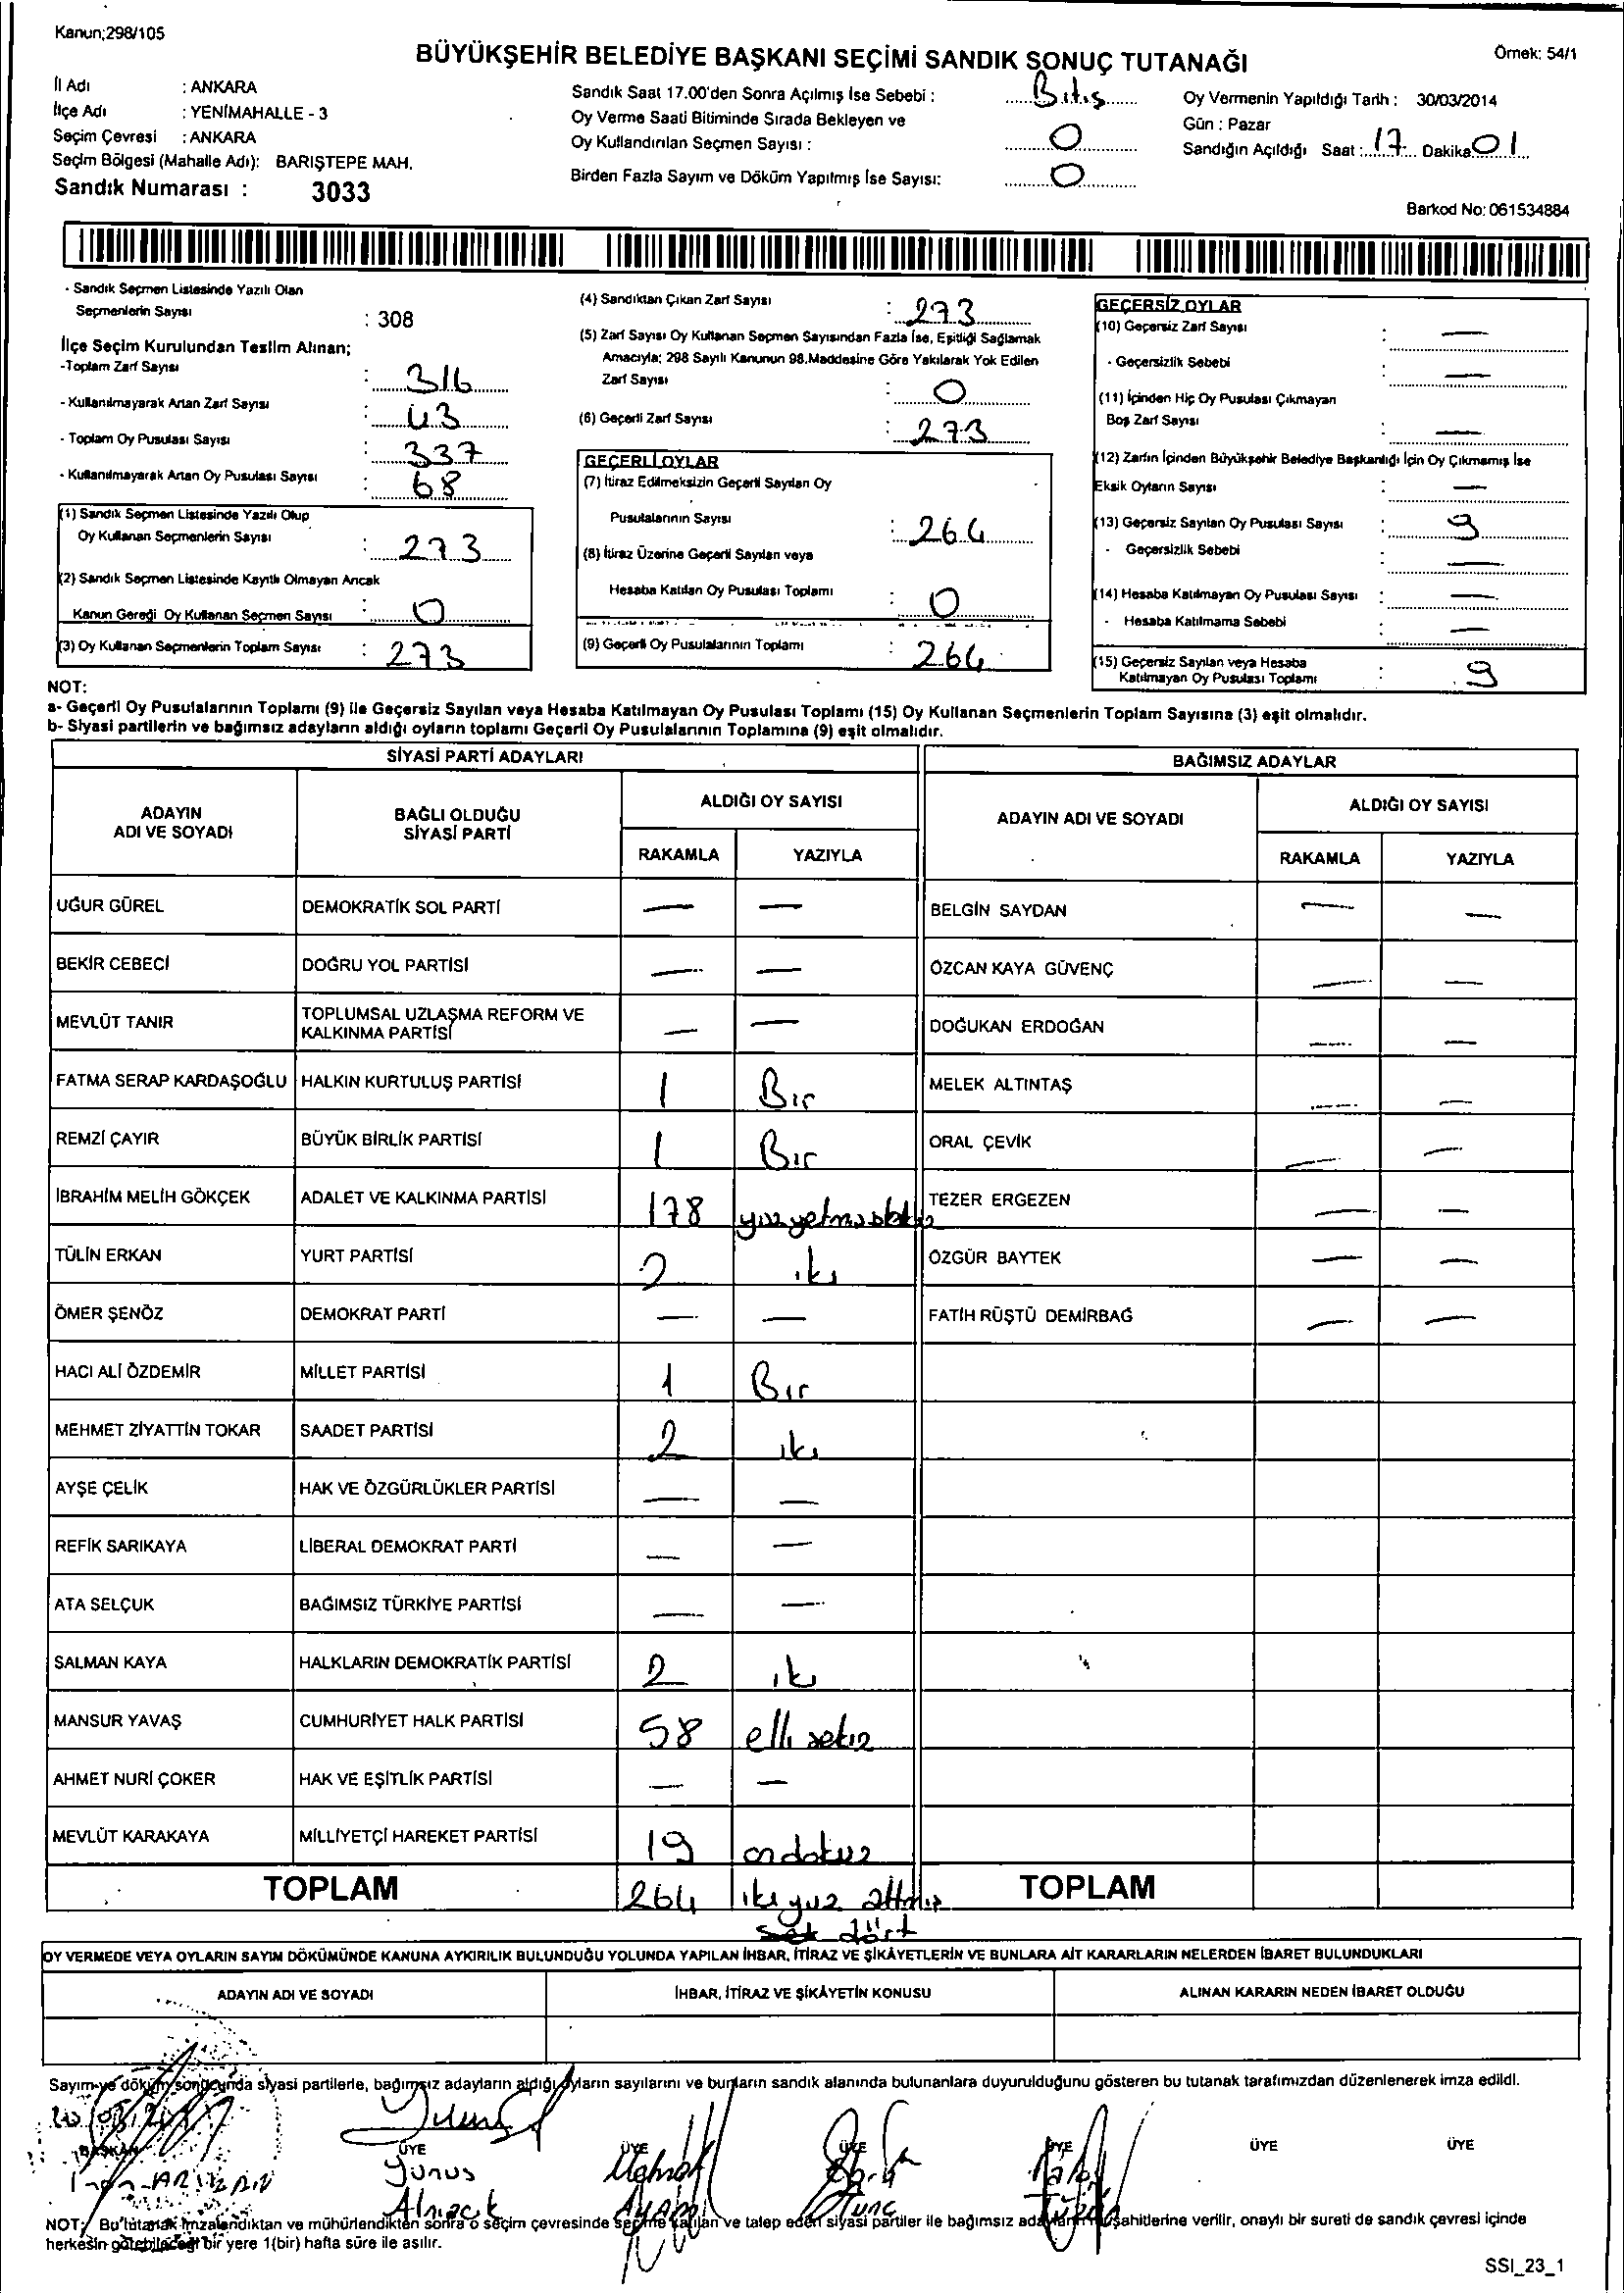 Kanun;298/105
BÜYÜKŞEHİR BELEDİYE BAŞKANI SEÇİMİ SANDIK SONUÇ TUTANAĞI
Örnek: 54/1
İl Adı : ANKARA
İlçe Adı : YENİMAHALLE - 3
Seçim Çevresi : ANKARA
Seçim Bölgesi (Mahalle Adı): BARIŞTEPE MAH.
Sandık Numarası : 3033
Sandık Saat 17.00'den Sonra Açılmış İse Sebebi : Bitiş
Oy Verme Saati Bitiminde Sırada Bekleyen ve
Oy Kullandırılan Seçmen Sayısı : 0
Birden Fazla Sayım ve Döküm Yapılmış İse Sayısı: 0
Oy Vermenin Yapıldığı Tarih : 30/03/2014
Gün : Pazar
Sandığın Açıldığı Saat : 17 Dakika 01
Barkod No: 061534884
- Sandık Seçmen Listesinde Yazılı Olan
Seçmenlerin Sayısı : 308
İlçe Seçim Kurulundan Teslim Alınan;
-Toplam Zarf Sayısı : 316
- Kullanılmayarak Artan Zarf Sayısı : 43
- Toplam Oy Pusulası Sayısı : 337
- Kullanılmayarak Artan Oy Pusulası Sayısı : 68
(1) Sandık Seçmen Listesinde Yazılı Olup
Oy Kullanan Seçmenlerin Sayısı : 273
(2) Sandık Seçmen Listesinde Kayıtlı Olmayan Ancak
Kanun Gereği Oy Kullanan Seçmen Sayısı : 0
(3) Oy Kullanan Seçmenlerin Toplam Sayısı : 273
(4) Sandıktan Çıkan Zarf Sayısı : 273
(5) Zarf Sayısı Oy Kullanan Seçmen Sayısından Fazla İse, Eşitliği Sağlamak
Amacıyla; 298 Sayılı Kanunun 98.Maddesine Göre Yakılarak Yok Edilen
Zarf Sayısı : 0
(6) Geçerli Zarf Sayısı : 273
GEÇERLİ OYLAR
(7) İtiraz Edilmeksizin Geçerli Sayılan Oy
Pusulalarının Sayısı : 264
(8) İtiraz Üzerine Geçerli Sayılan veya
Hesaba Katılan Oy Pusulası Toplamı : 0
(9) Geçerli Oy Pusulalarının Toplamı : 264
GEÇERSİZ OYLAR
(10) Geçersiz Zarf Sayısı : —
- Geçersizlik Sebebi : —
(11) İçinden Hiç Oy Pusulası Çıkmayan
Boş Zarf Sayısı : —
(12) Zarfın İçinden Büyükşehir Belediye Başkanlığı İçin Oy Çıkmamış İse
Eksik Oyların Sayısı : —
(13) Geçersiz Sayılan Oy Pusulası Sayısı : 9
- Geçersizlik Sebebi —
(14) Hesaba Katılmayan Oy Pusulası Sayısı : —
- Hesaba Katılmama Sebebi —
(15) Geçersiz Sayılan veya Hesaba
Katılmayan Oy Pusulası Toplamı : 9
NOT:
a- Geçerli Oy Pusulalarının Toplamı (9) ile Geçersiz Sayılan veya Hesaba Katılmayan Oy Pusulası Toplamı (15) Oy Kullanan Seçmenlerin Toplam Sayısına (3) eşit olmalıdır.
b- Siyasi partilerin ve bağımsız adayların aldığı oyların toplamı Geçerli Oy Pusulalarının Toplamına (9) eşit olmalıdır.
SİYASİ PARTİ ADAYLARI
ADAYIN ADI VE SOYADI
BAĞLI OLDUĞU SİYASİ PARTİ
ALDIĞI OY SAYISI
RAKAMLA YAZIYLA
UĞUR GÜREL DEMOKRATİK SOL PARTİ — —
BEKİR CEBECİ DOĞRU YOL PARTİSİ — —
MEVLÜT TANIR TOPLUMSAL UZLAŞMA REFORM VE
KALKINMA PARTİSİ — —
FATMA SERAP KARDAŞOĞLU HALKIN KURTULUŞ PARTİSİ 1 Bir
REMZİ ÇAYIR BÜYÜK BİRLİK PARTİSİ 1 Bir
İBRAHİM MELİH GÖKÇEK ADALET VE KALKINMA PARTİSİ 178
TÜLİN ERKAN YURT PARTİSİ 2 iki
ÖMER ŞENÖZ DEMOKRAT PARTİ — —
HACI ALİ ÖZDEMİR MİLLET PARTİSİ 1 Bir
MEHMET ZİYATTİN TOKAR SAADET PARTİSİ 2 iki
AYŞE ÇELİK HAK VE ÖZGÜRLÜKLER PARTİSİ — —
REFİK SARIKAYA LİBERAL DEMOKRAT PARTİ — —
ATA SELÇUK BAĞIMSIZ TÜRKİYE PARTİSİ — —
SALMAN KAYA HALKLARIN DEMOKRATİK PARTİSİ 2 iki
MANSUR YAVAŞ CUMHURİYET HALK PARTİSİ 58 elli sekiz
AHMET NURİ ÇOKER HAK VE EŞİTLİK PARTİSİ — —
MEVLÜT KARAKAYA MİLLİYETÇİ HAREKET PARTİSİ 19 ondokuz
TOPLAM 264 iki yüz altmış
dört
BAĞIMSIZ ADAYLAR
ADAYIN ADI VE SOYADI
ALDIĞI OY SAYISI
RAKAMLA YAZIYLA
BELGİN SAYDAN — —
ÖZCAN KAYA GÜVENÇ — —
DOĞUKAN ERDOĞAN — —
MELEK ALTINTAŞ — —
ORAL ÇEVİK — —
TEZER ERGEZEN — —
ÖZGÜR BAYTEK — —
FATİH RÜŞTÜ DEMİRBAĞ — —
TOPLAM
OY VERMEDE VEYA OYLARIN SAYIM DÖKÜMÜNDE KANUNA AYKIRILIK BULUNDUĞU YOLUNDA YAPILAN İHBAR, İTİRAZ VE ŞİKÂYETLERİN VE BUNLARA AİT KARARLARIN NELERDEN İBARET BULUNDUKLARI
ADAYIN ADI VE SOYADI İHBAR, İTİRAZ VE ŞİKÂYETİN KONUSU ALINAN KARARIN NEDEN İBARET OLDUĞU
Sayım ve döküm sonucunda siyasi partilerle, bağımsız adayların aldığı oyların sayılarını ve bunların sandık alanında bulunanlara duyurulduğunu gösteren bu tutanak tarafımızdan düzenlenerek imza edildi.
BAŞKAN ÜYE ÜYE ÜYE ÜYE ÜYE ÜYE
Yunus
NOT: Bu tutanak imzalandıktan ve mühürlendikten sonra o seçim çevresinde seçime katılan ve talep eden siyasi partiler ile bağımsız adayların müşahitlerine verilir, onaylı bir sureti de sandık çevresi içinde
herkesin görebileceği bir yere 1(bir) hafta süre ile asılır.
SSI_23_1